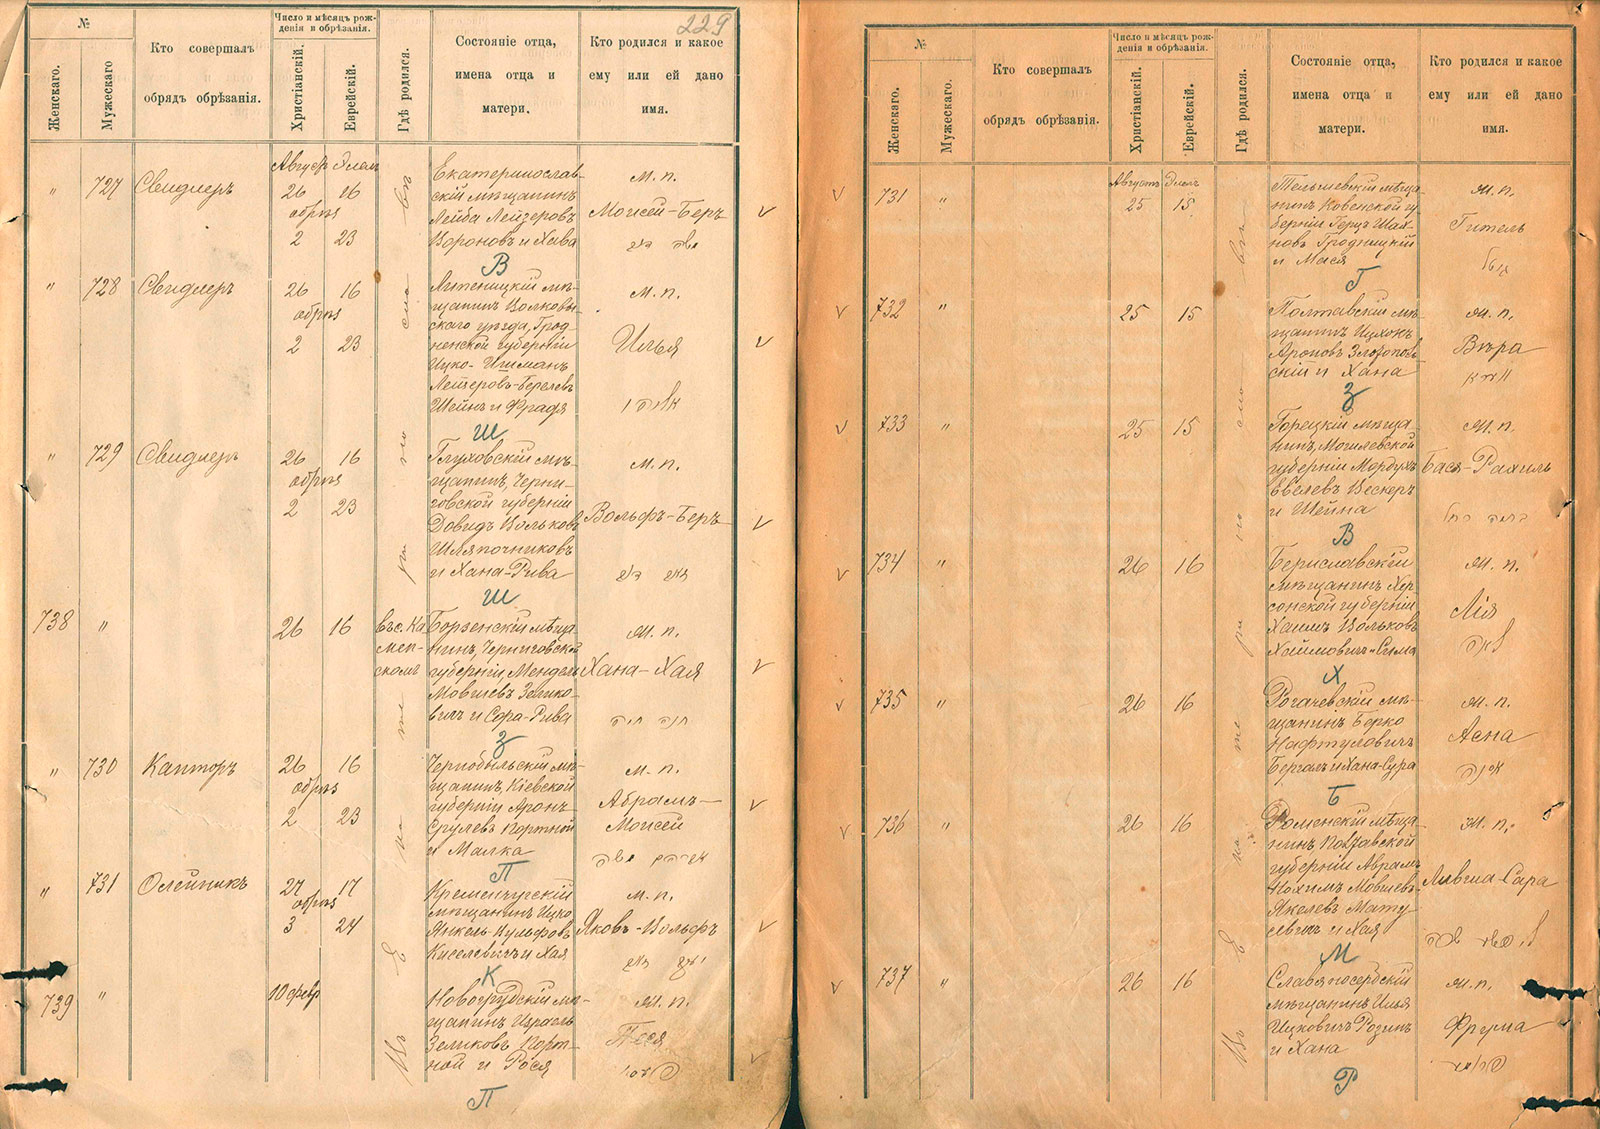 229
№
Женскаго.
Мужескаго
Кто совершалъ
обрядъ обрѣзанія.
Число и мѣсяцъ рож-
денія и обрѣзанія.
Христіанскій.
Еврейскій.
Гдѣ родился.
Состояніе отца,
имена отца и
матери.
Кто родился и какое
ему или ей дано
имя.
Августъ Элелъ
" 727 Свидлеръ 26 16
обрѣз
2 23
Екатеринослав-
скій мѣщанинъ
Лейба Лейзеровъ
Вороновъ и Хава
В
м. п.
Моисей-Беръ
" 728 Свидлеръ 26 16
обрѣз
2 23
мѣ-
щанинъ Волковы-
скаго уѣзда, Грод-
ненской губерніи
Ицко-
Лейзеровъ-Береловъ
Шейнъ и Фрадя
Ш
м. п.
Илья
" 729 Свидлеръ 26 16
обрѣз
2 23
Глуховскій мѣ-
щанинъ, Черни-
говской губерніи
Довидъ Вольковъ
Шляпочниковъ
и Хана-Рива
Ш
м. п.
Вольфъ-Беръ
738 " 26 16
въ с. Ка
мен-
скомъ
Борзенскій мѣща
нинъ, Черниговской
губерніи, Мендель
Мовшевъ Зелико-
вичъ и Сора-Рива
З
ж. п.
Хана-Хая
חנה חיה
" 730 Канторъ 26 16
обрѣз
2 23
Чернобыльскій мѣ-
щанинъ, Кіевской
губерніи Аронъ
Срулевъ Портной
и Малка
П
м. п.
Абрамъ-
Моисей
אברהם משה
" 731 Олейникъ 27 17
обрѣз
3 24
Кременчугскій
мѣщанинъ Ицко
Янкель-Вульфовъ
Киселевичъ и Хая
К
м. п.
Яковъ-Вольфъ
739 " 10 февр
Новогрудскій мѣ-
щанинъ Израель
Зеликовъ Порт-
ной и Рося
П
ж. п.
Песя
Въ Е
№
Женскаго.
Мужескаго.
Кто совершалъ
обрядъ обрѣзанія.
Число и мѣсяцъ рож-
денія и обрѣзанія.
Христіанскій.
Еврейскій.
Гдѣ родился.
Состояніе отца,
имена отца и
матери.
Кто родился и какое
ему или ей дано
имя.
Августъ Элелъ
731 " 25 15
Тельшевскій мѣща-
нинъ Ковенской гу-
берніи Герцъ Шах-
новъ Гродницкій
и Мася
Г
ж. п.
Гитель
גיטל
732 " 25 15
Полтавскій мѣ-
щанинъ Ицхокъ
Ароновъ Златополь-
скій и Хана
З
ж. п.
Вѣра
733 " 25 15
Горецкій мѣща-
нинъ, Могилевской
губерніи Мордухъ
Евелевъ Вескеръ
и Шейна
В
ж. п.
Бася-Рахиль
באסיה רחל
734 " 26 16
Бериславскій
мѣщанинъ Хер-
сонской губерніи
Хаимъ Вольковъ
Хаимовичъ и Сима
Х
ж. п.
Лія
לאה
735 " 26 16
Рогачевскій мѣ-
щанинъ Берко
Нафтуловичъ
Бергалъ и Хана-Сура
Б
ж. п.
Асна
736 " 26 16
Роменскій мѣща-
нинъ Полтавской
губерніи Аврамъ
Нохимъ Мовшевъ-
Якелевъ Мату
севичъ и Хая
М
ж. п.
737 " 26 16
Славяносербскій
мѣщанинъ Илья
Ицковичъ Розинъ
и Хана
Р
ж. п.
Фрума
Въ Е